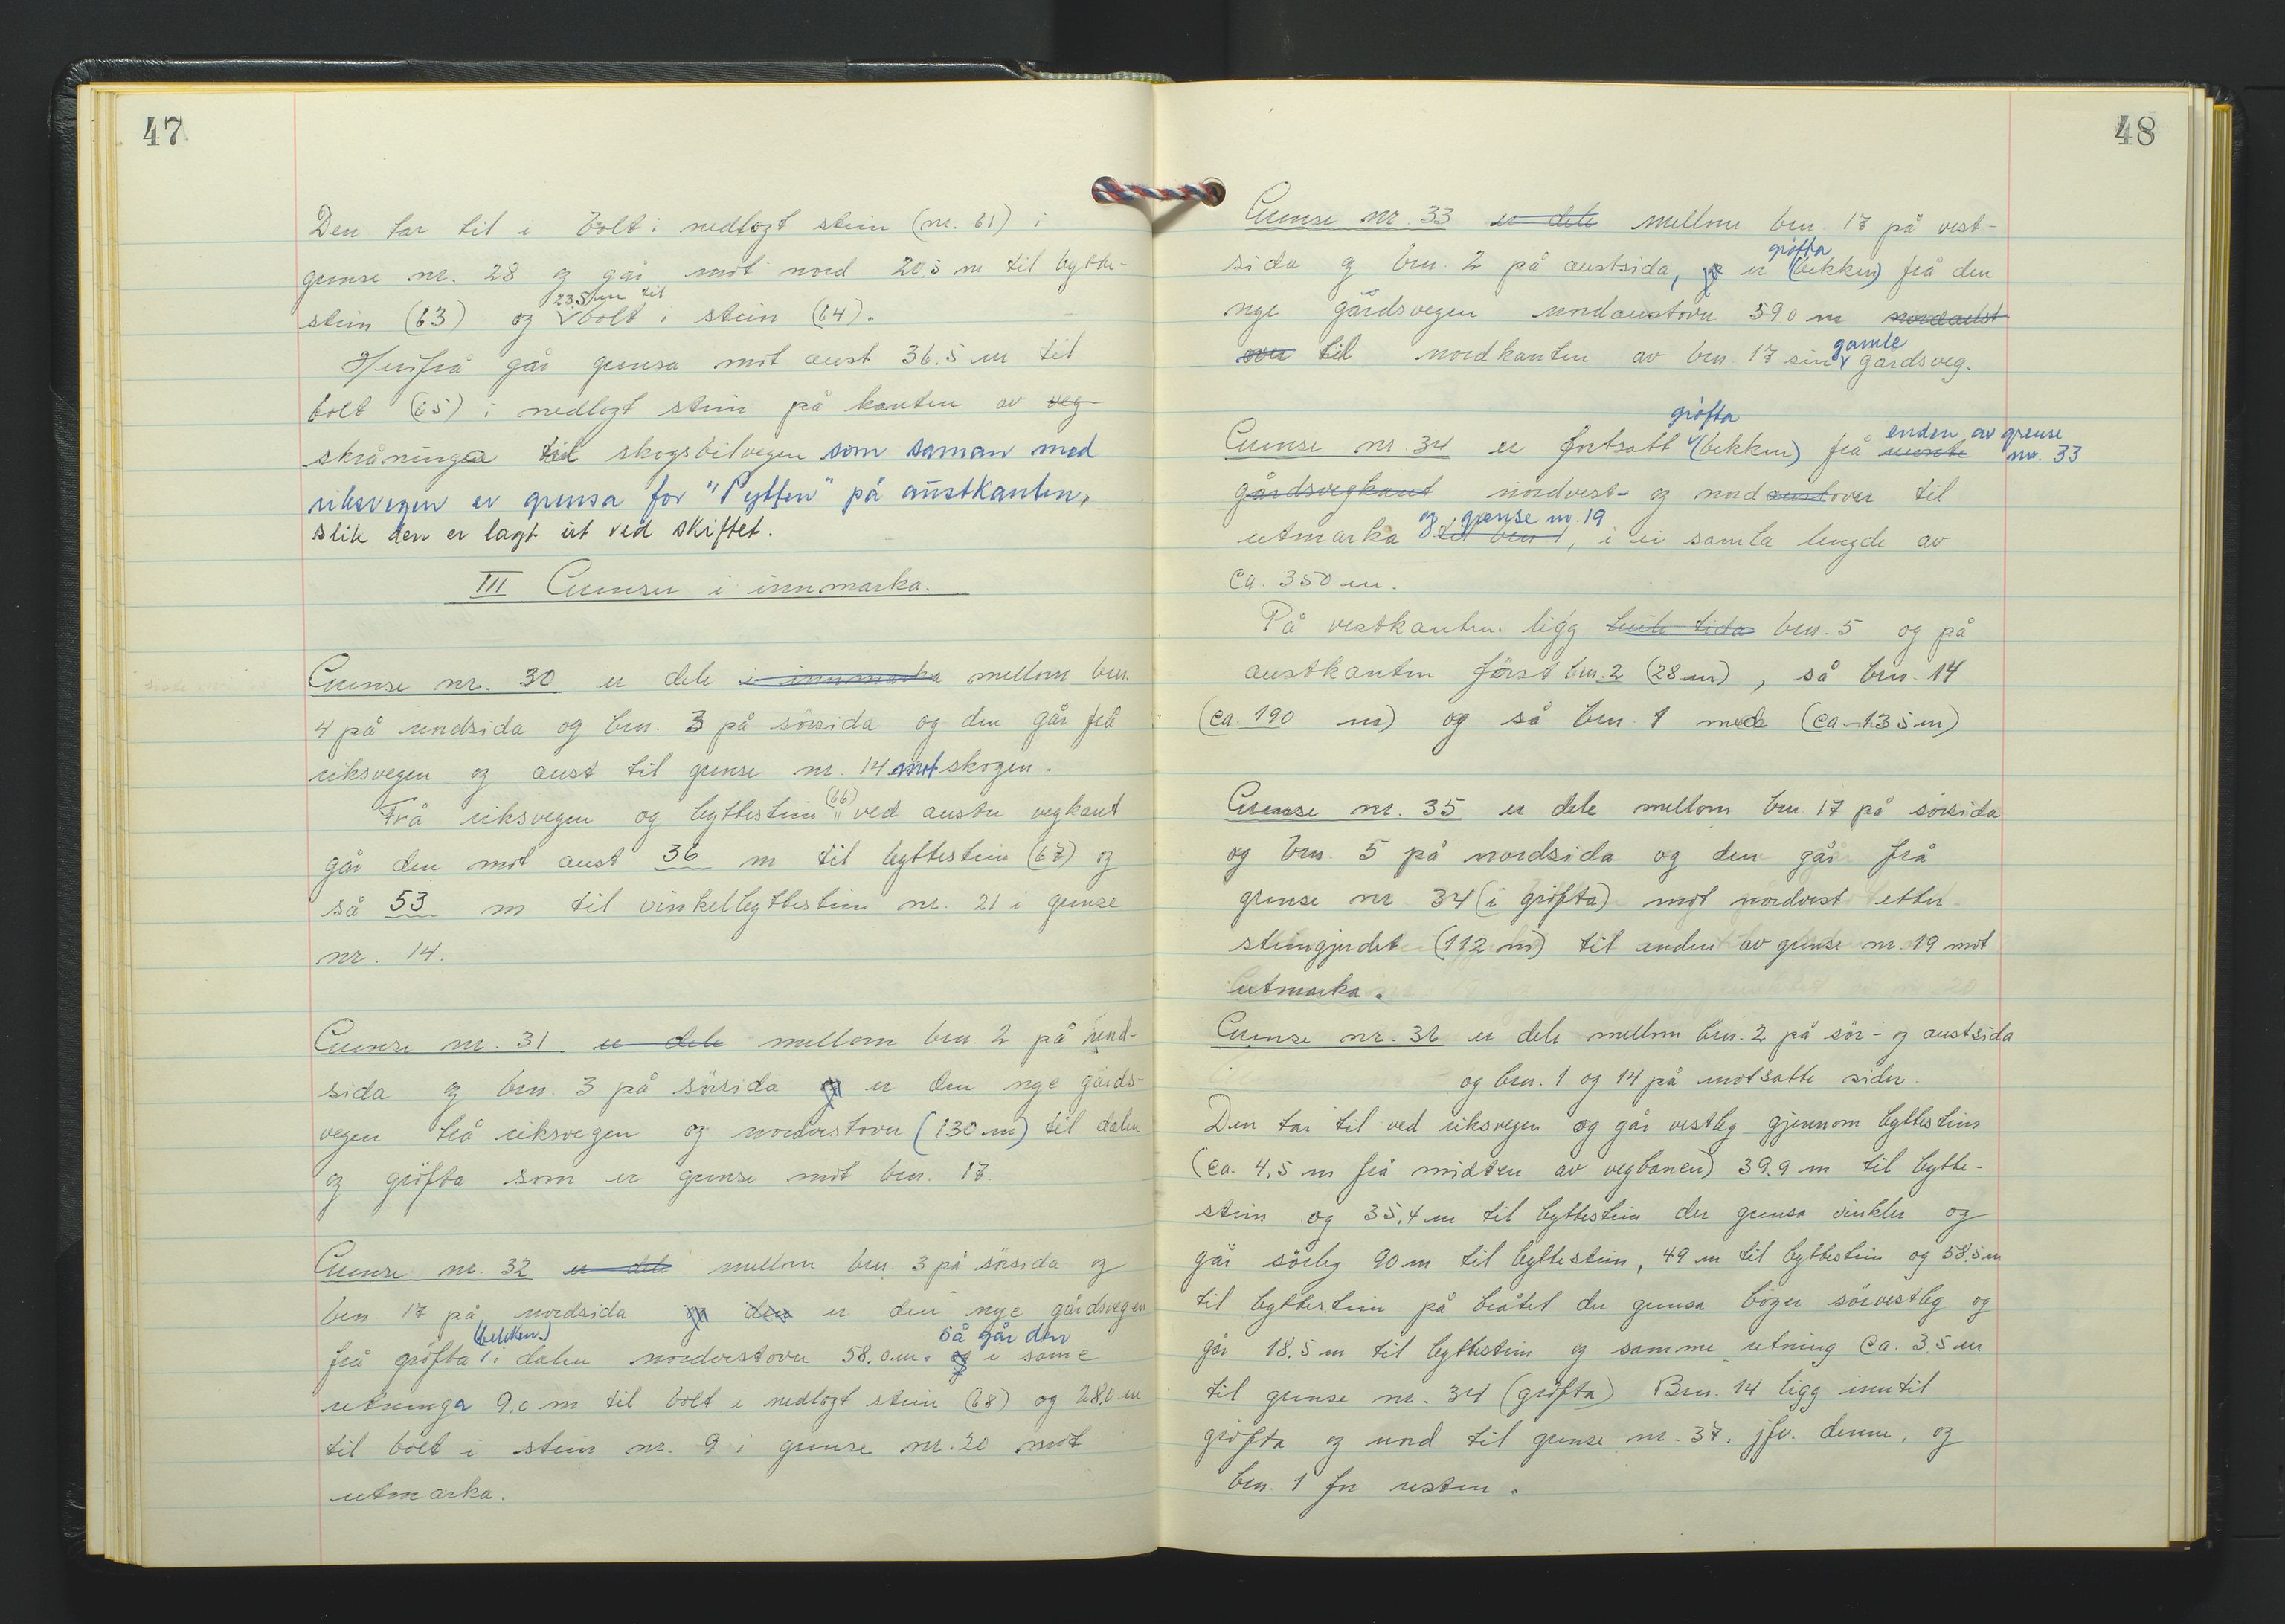 47
Den tar til i bolt i nedlagt stein (nr. 61) i
grense nr. 28 og går mot nord 20.5 m til bytte-
23.5 m til
stein (63) og bolt i stein (64).
Herifrå går grensa mot aust 36.5 m til
bolt (65) i nedlagt stein på kanten av veg
skråninga til skogsbilvegen som saman med
riksvegen er grensa for "Pytten" på austkanten,
slik den er lagt ut ved skiftet.
III Grenser i innmarka.
Grense nr. 30 er dele i innmarka mellom bru.
4 på nordsida og bru. 3 på sørsida og den går frå
riksvegen og aust til grense nr. 14 mot skogen.
(66)
Frå riksvegen og byttestein ved austre vegkant
går den mot aust 36 m til byttestein (67) og
så 53 m til vinkelbyttestein nr. 21 i grense
nr. 14.
Grense nr. 31 er dele mellom bru 2 på nord-
sida og bru. 3 på sørsida og er den nye gårds-
vegen frå riksvegen og nordvestover (130 m) til dalen
og grøfta som er grense mot bru. 17.
Grense nr. 32 er dele mellom bru. 3 på sørsida og
bru 17 på nordsida og den er den nye gårdsvegen
(bekken) så går den
frå grøfta i dalen nordvestover 58.0 m. og i same
retninga 9.0 m til bolt i nedlagt stein (68) og 28.0 m
til bolt i stein nr. 9 i grense nr. 20 mot
utmarka.
48
Grense nr. 33 er dele mellom bru. 17 på vest-
grøfta
sida og bru. 2 på austsida, og er (bekken) frå den
nye gårdsvegen nordaustover 59.0 m nordaust
gamle
over til nordkanten av bru. 17 sin gardsveg.
grøfta enden av grense
Grense nr. 34 er fortsatt (bekken) frå nr. 33
gårdsvegkant nordvest- og nordaustover til
og grense nr. 19
utmarka til bru 1, i ei samla lengde av
ca. 350 m.
På vestkanten ligg heile tida bru. 5 og på
austkanten først bru. 2 (28 m), så bru. 14
(ca. 190 m) og så bru. 1 med (ca 135 m)
Grense nr. 35 er dele mellom bru. 17 på sørsida
og bru. 5 på nordsida og den går frå
grense nr 34 (i grøfta) mot nordvest etter
steingjerdet (112 m) til enden av grense nr. 19 mot
utmarka.
Grense nr. 36 er dele mellom bru. 2 på sør- og austsida
og bru. 1 og 14 på motsatte sider.
Den tar til ved riksvegen og går vestleg gjennom byttestein
(ca. 4,5 m frå midten av vegbanen) 39.9 m til bytte-
stein og 35.4 m til byttestein der grensa vinkler og
går sørleg 90 m til byttestein, 49 m til byttestein og 58.5 m
til byttestein på bråtet der grensa bøyer sørvestleg og
går 18.5 m til byttestein og samme retning ca. 3.5 m
til grense nr. 34 (grøfta) Bru. 14 ligg inntil
grøfta og nord til grense nr. 37, jfr. denne, og
bru. 1 for resten.